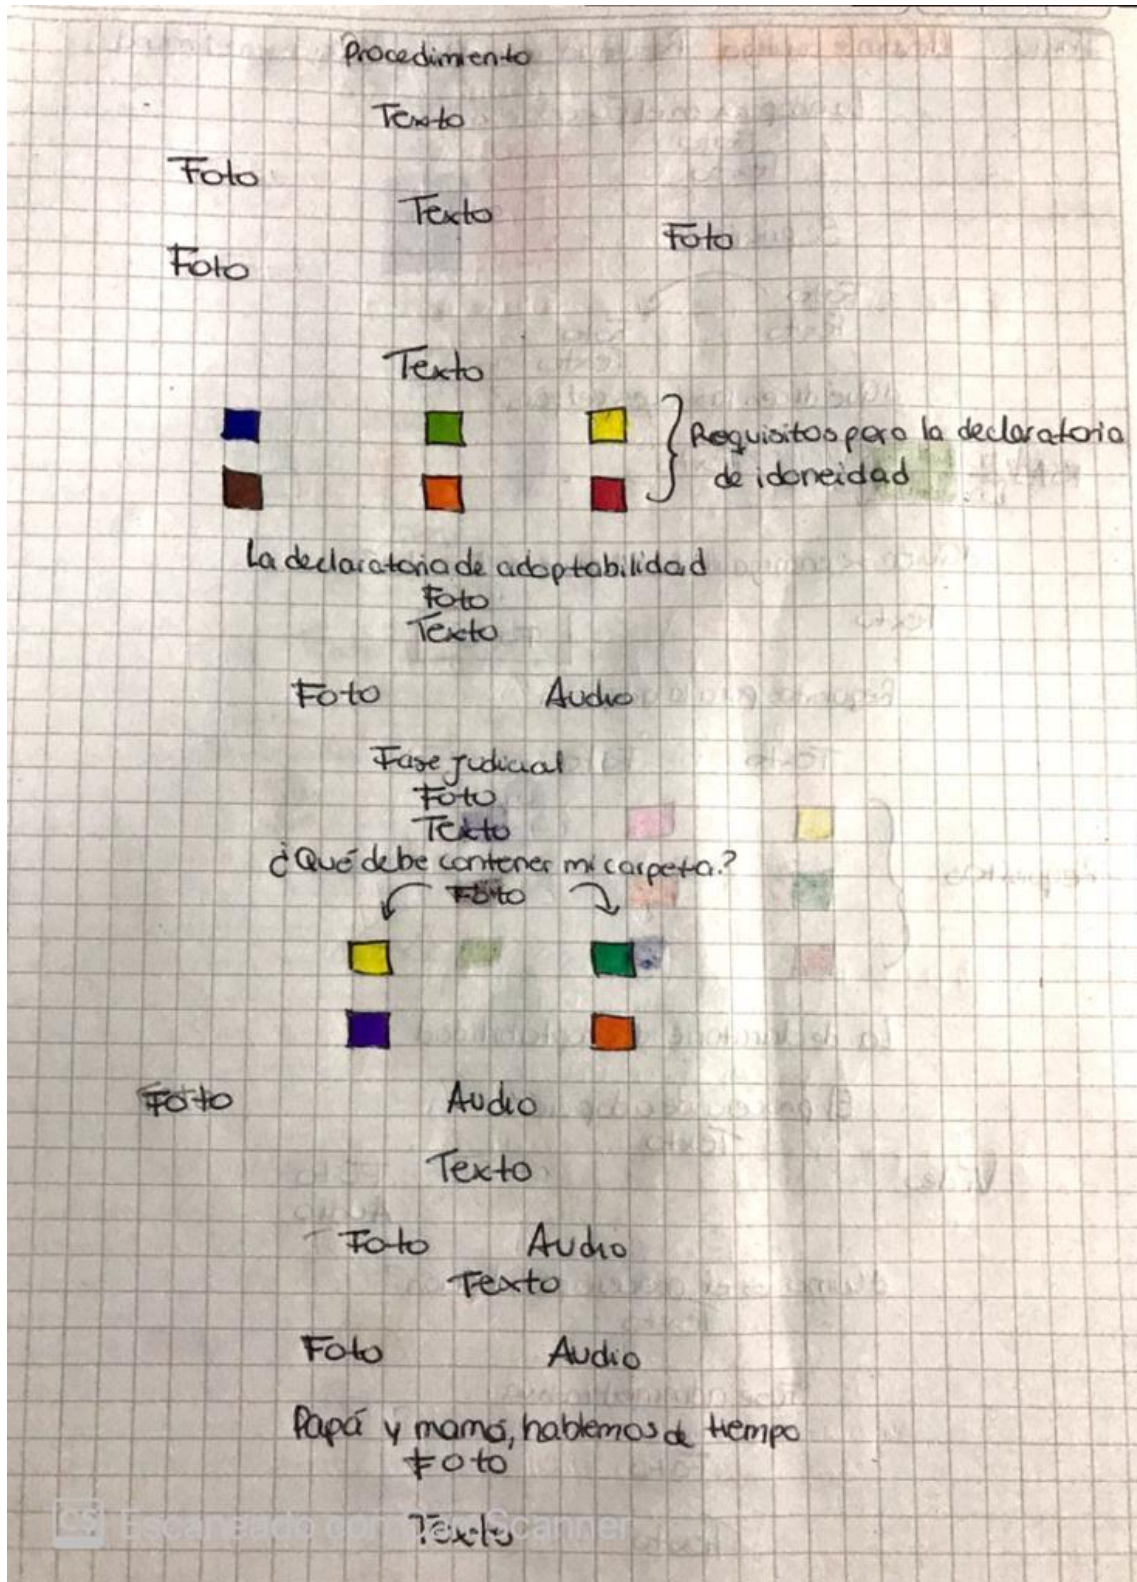 Procedimiento
Texto
Foto
Texto
Foto
Foto
Texto
Requisitos para la declaratoria
de idoneidad
La declaratoria de adoptabilidad
Foto
Texto
Foto Audio
Fase judicial
Foto
Texto
¿Qué debe contener mi carpeta?
Foto
Foto Audio
Texto
Foto Audio
Texto
Foto Audio
Papá y mamá, hablemos de tiempo
Foto
Texto
CS Escaneado con CamScanner